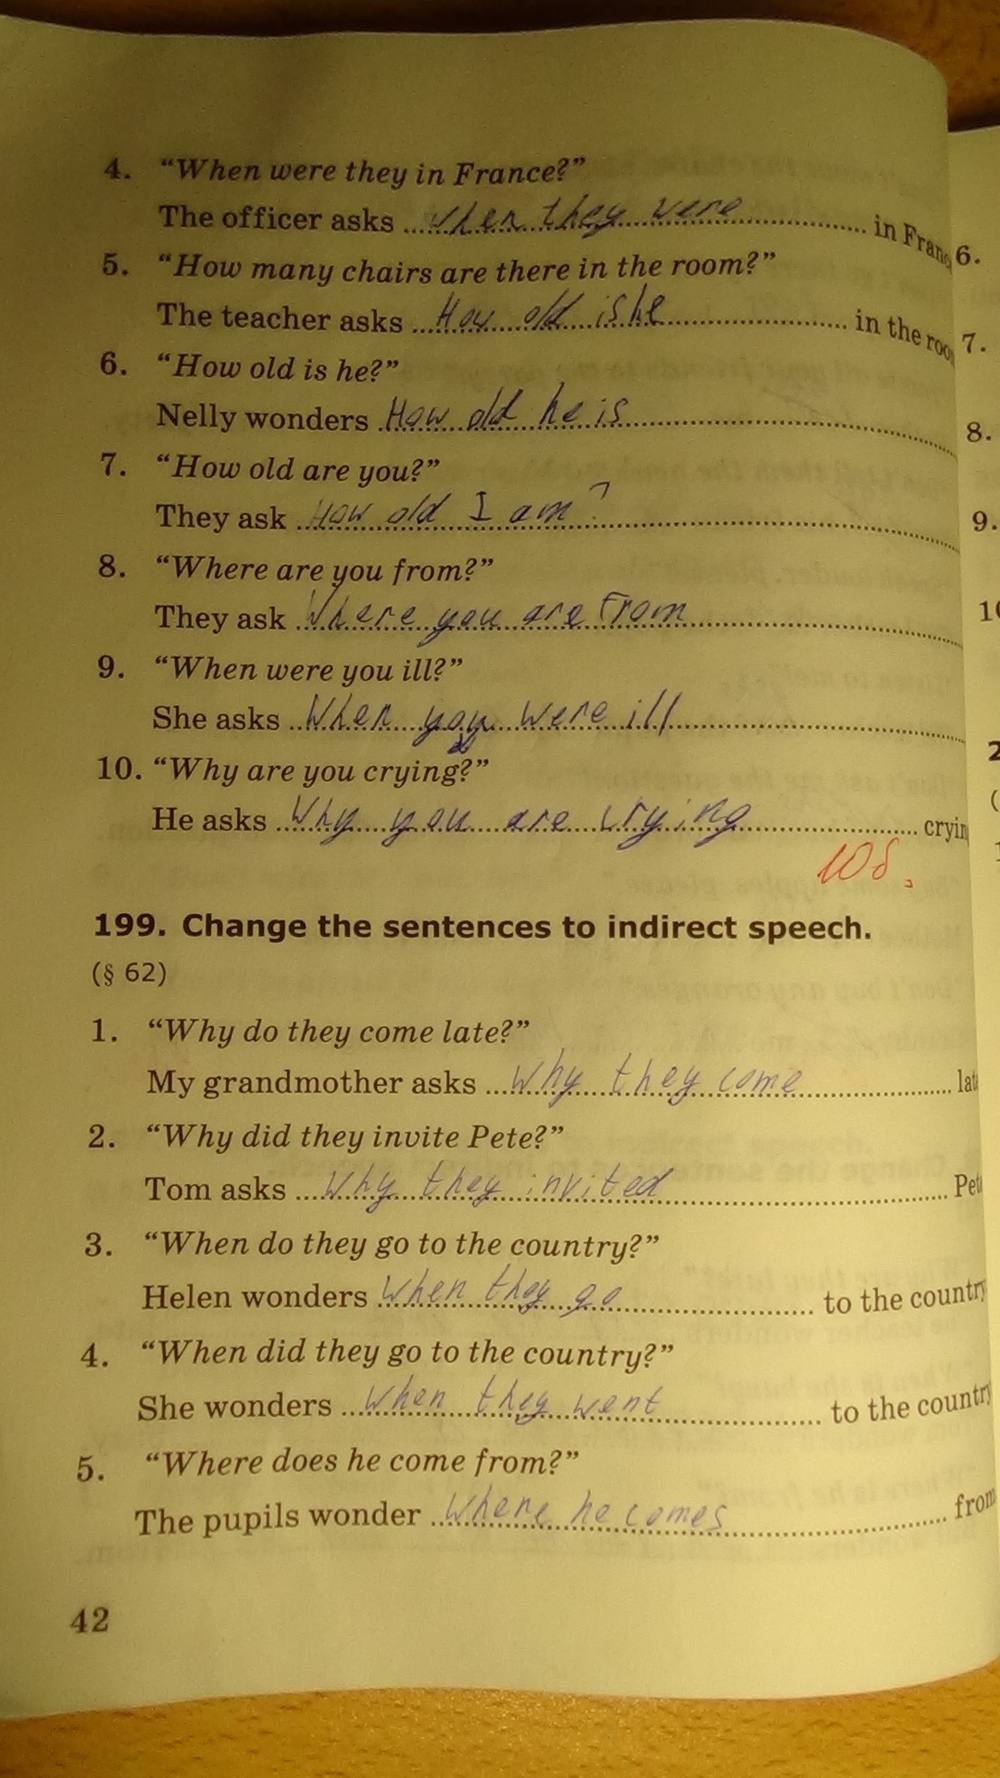 4. “When were they in France?”
The officer asks ... when they were ... in Franc
5. “How many chairs are there in the room?”
The teacher asks ... How old is he ... in the roo
6. “How old is he?”
Nelly wonders ... How old he is ...
7. “How old are you?”
They ask ... How old I am? ...
8. “Where are you from?”
They ask ... Where you are from ...
9. “When were you ill?”
She asks ... When you were ill ...
10. “Why are you crying?”
He asks ... Why you are crying ... cryin
10б.
199. Change the sentences to indirect speech.
(§ 62)
1. “Why do they come late?”
My grandmother asks ... why they come ... lat
2. “Why did they invite Pete?”
Tom asks ... why they invited ... Pet
3. “When do they go to the country?”
Helen wonders ... when they go ... to the country
4. “When did they go to the country?”
She wonders ... when they went ... to the country
5. “Where does he come from?”
The pupils wonder ... where he comes ... from
42
6.
7.
8.
9.
10
2
(
1